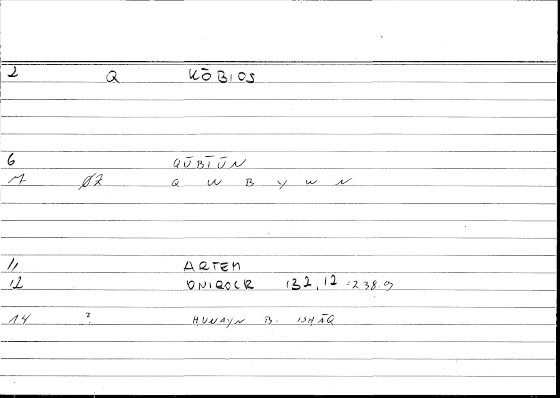 2 Q KŌBIOS
6 QŪBĪŪN
7 Q W B Y W N
11 ARTEM
12 ONIROCR 132,12 =238.9
14 ? ḤUNAYN B. ISḤĀQ